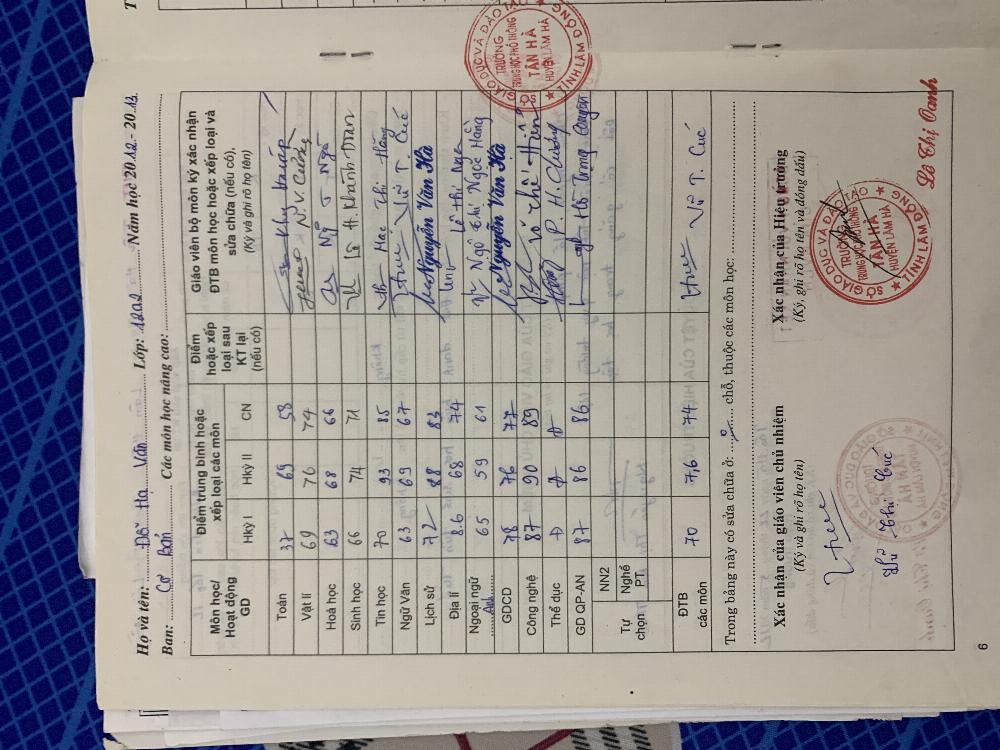 Họ và tên: Đỗ Hạ Vân Lớp: 12A2 Năm học 2012 - 2013
Ban: Cơ bản Các môn học nâng cao:
Môn học/ Hoạt động GD
Điểm trung bình hoặc xếp loại các môn
Hkỳ I Hkỳ II CN
Điểm hoặc xếp loại sau KT lại (nếu có)
Giáo viên bộ môn ký xác nhận ĐTB môn học hoặc xếp loại và sửa chữa (nếu có),
(Ký và ghi rõ họ tên)
Toán 37 69 58
Vật lí 69 76 74 N. V. Cường
Hoá học 63 68 66 T. Ngà
Sinh học 66 74 71 H. Khánh Đoan
Tin học 70 93 85 Mạc Thị Hằng
Ngữ Văn 63 69 67 Vũ T. Cúc
Lịch sử 72 88 83 Nguyễn Văn Hà
Địa lí 8.6 68 74 Lê Thị Nga
Ngoại ngữ Anh 65 59 61 Ngô Thị Ngọc Hằng
GDCD 78 76 77 Nguyễn Văn Hà
Công nghệ 87 90 89 Võ Thế Hiển
Thể dục Đ Đ Đ P. H. Chương
GD QP-AN 87 86 86
Tự chọn
NN2
Nghề PT
ĐTB các môn 70 7,6 74 Vũ T. Cúc
Trong bảng này có sửa chữa ở: 0 chỗ, thuộc các môn học:
Xác nhận của giáo viên chủ nhiệm
(Ký và ghi rõ họ tên)
Vũ Thị Cúc
Xác nhận của Hiệu trưởng
(Ký, ghi rõ họ tên và đóng dấu)
SỞ GIÁO DỤC VÀ ĐÀO TẠO
TRƯỜNG
TRUNG HỌC PHỔ THÔNG
TÂN HÀ
HUYỆN LÂM HÀ
★ TỈNH LÂM ĐỒNG ★
Lê Thị Oanh
GIÁO DỤC VÀ ĐÀO TẠO
TRƯỜNG
TRUNG HỌC PHỔ THÔNG
TÂN HÀ
HUYỆN LÂM HÀ
★ TỈNH LÂM ĐỒNG
6